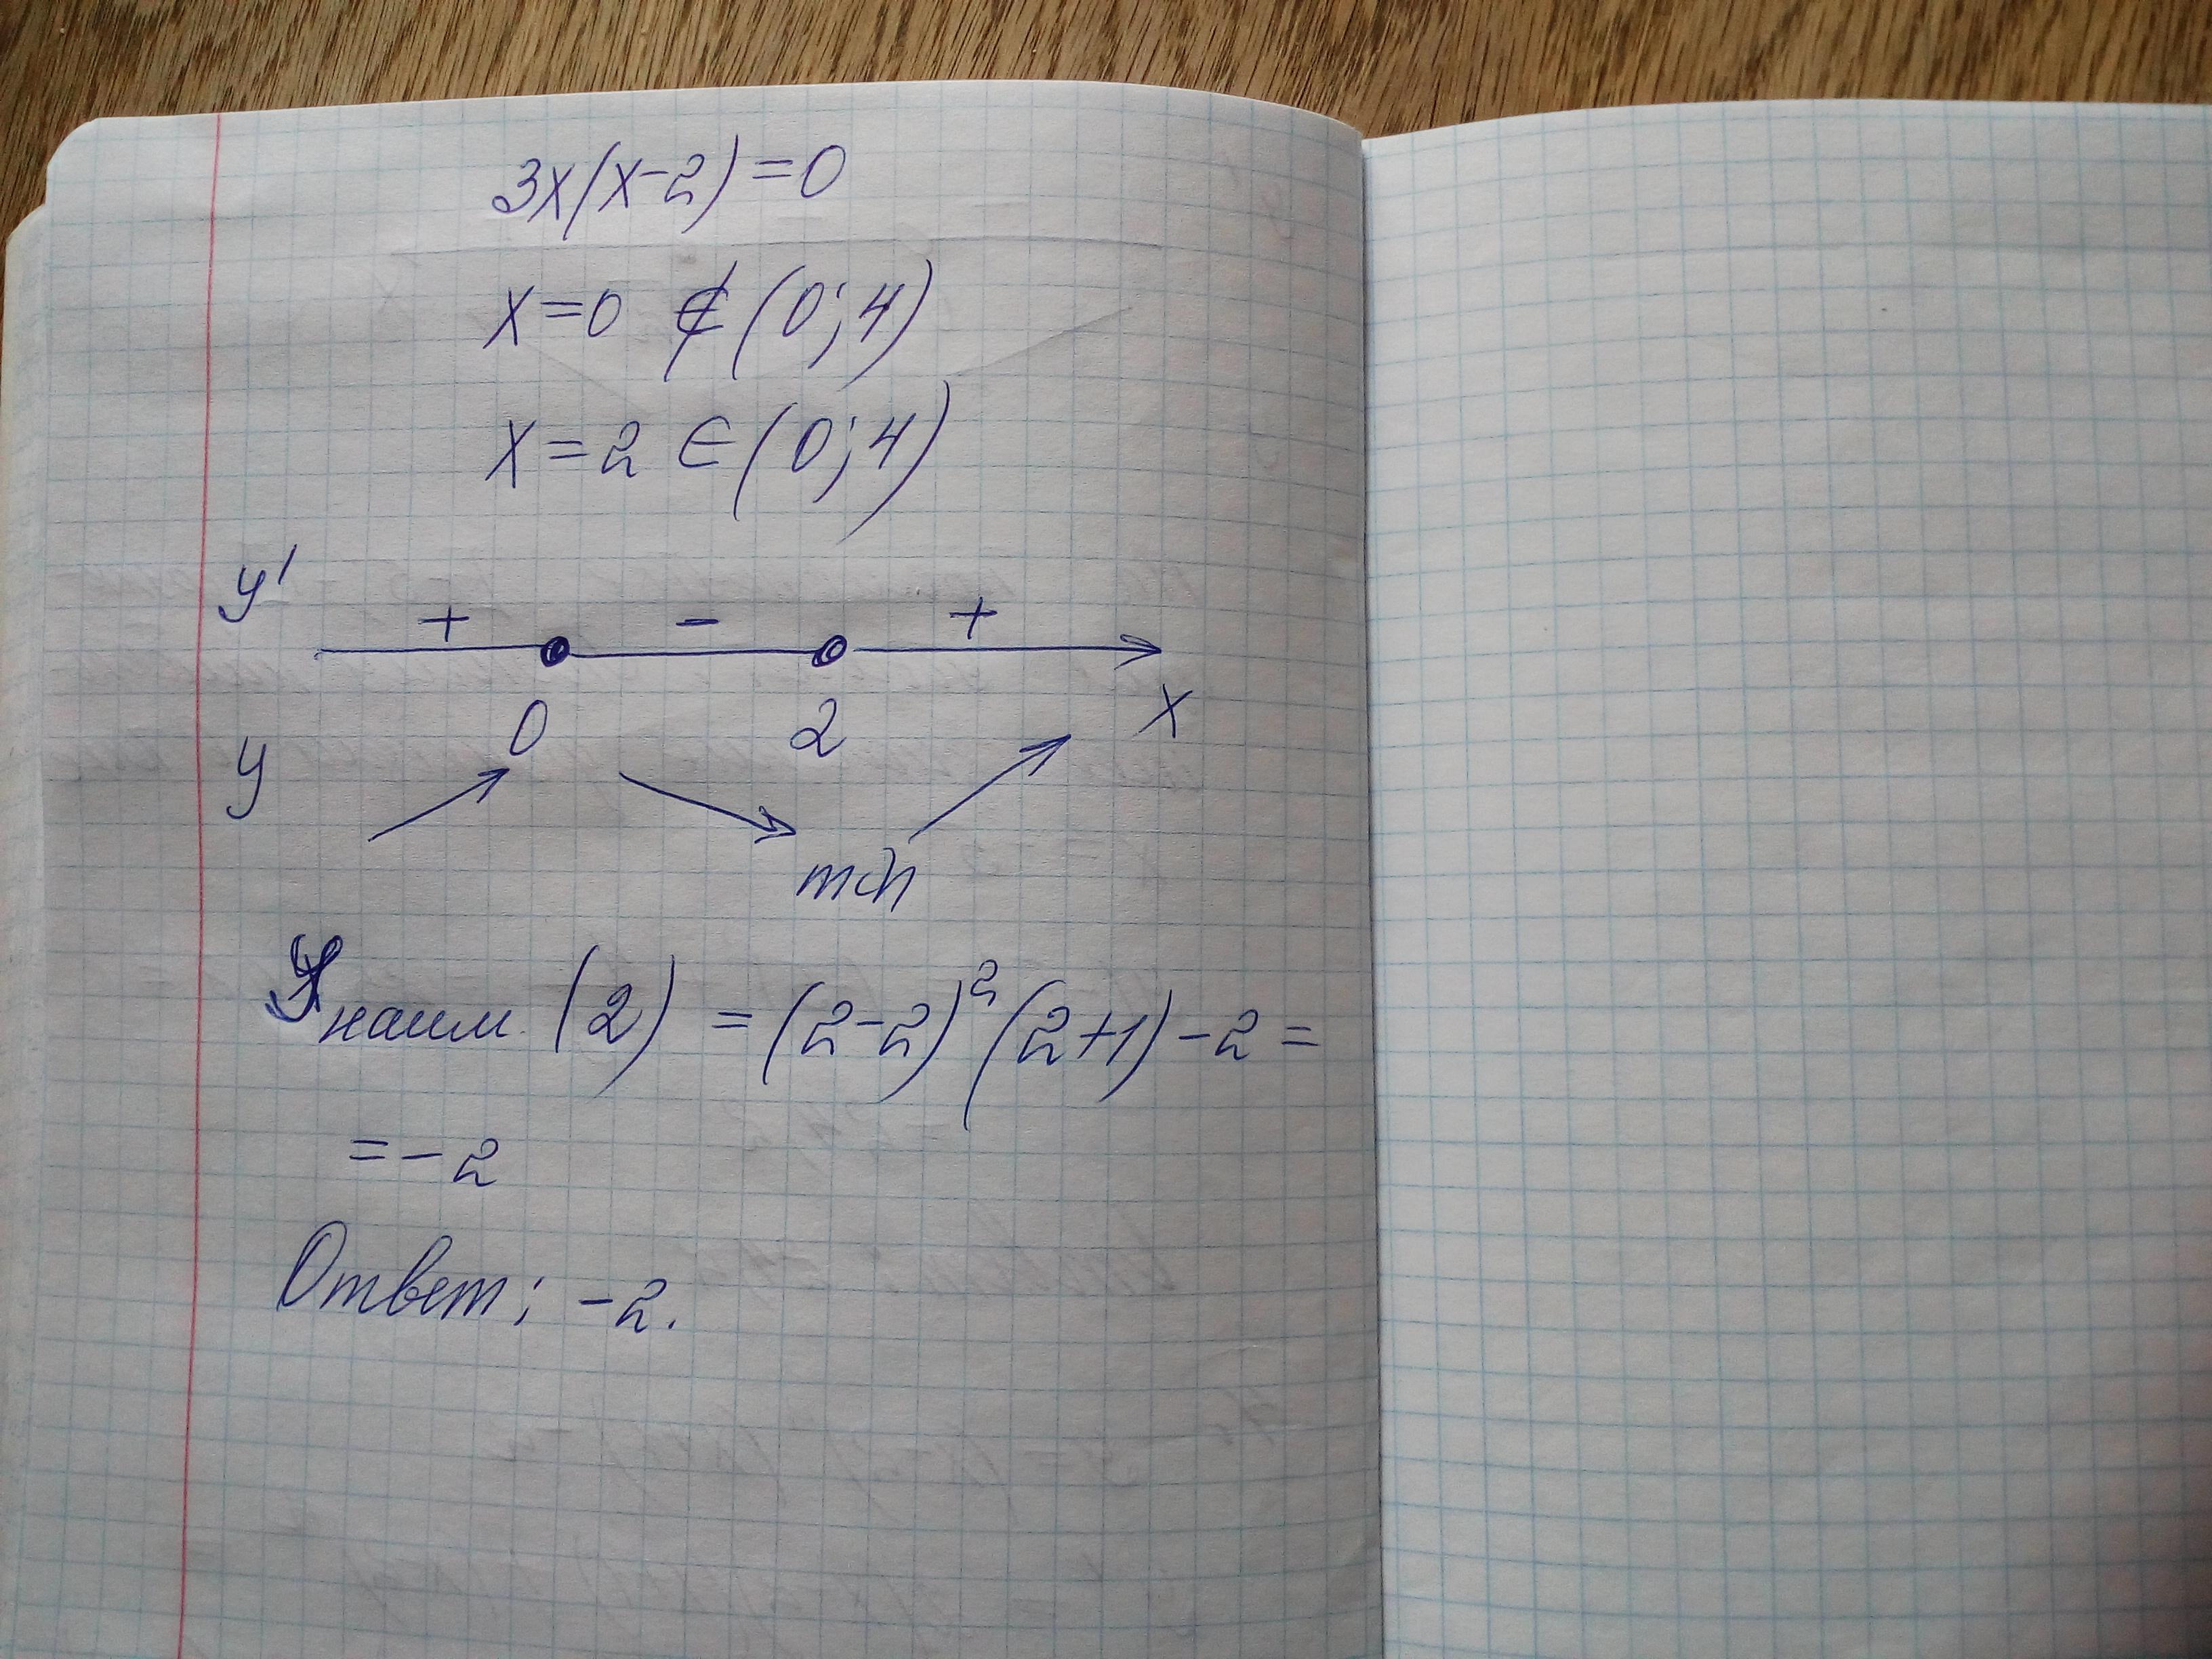 3x(x-2)=0
x=0 ∉ (0;4)
x=2 ∈ (0;4)
y'
+ - +
0 2 x
y
min
Yнаим. (2) = (2-2)²(2+1)-2=
=-2
Ответ: -2.